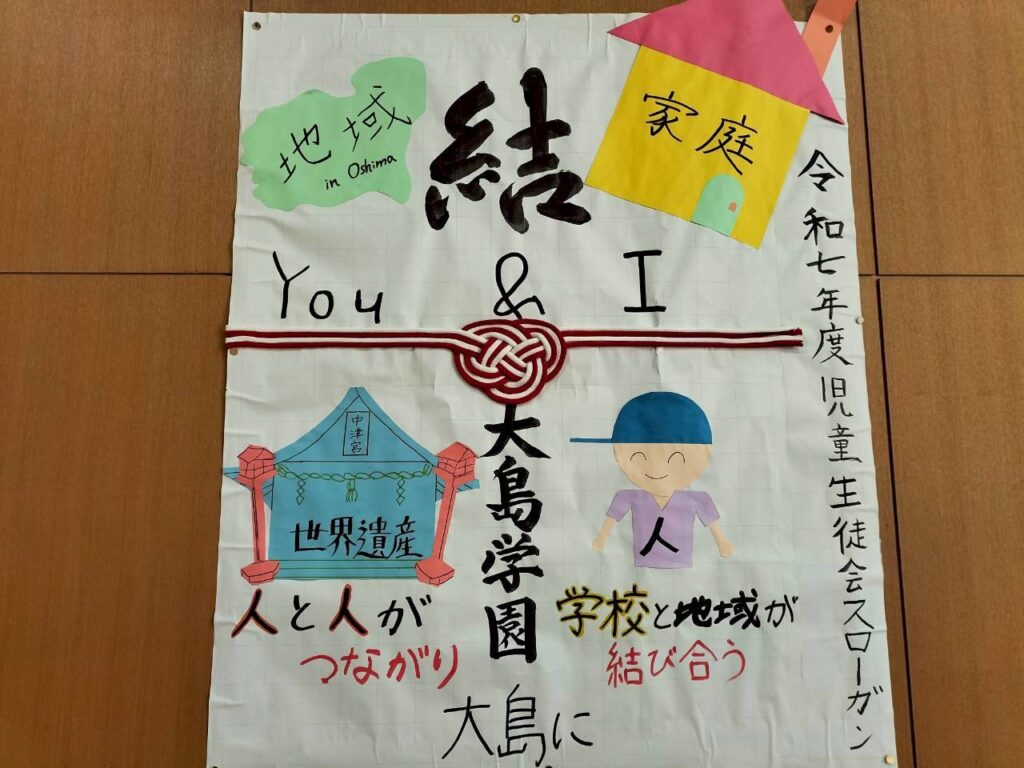 令和七年度児童生徒会スローガン
地域
in Oshima
結
家庭
You & I
中津宮
世界遺産
大島学園
人
人と人が
つながり
学校と地域が
結び合う
大島に